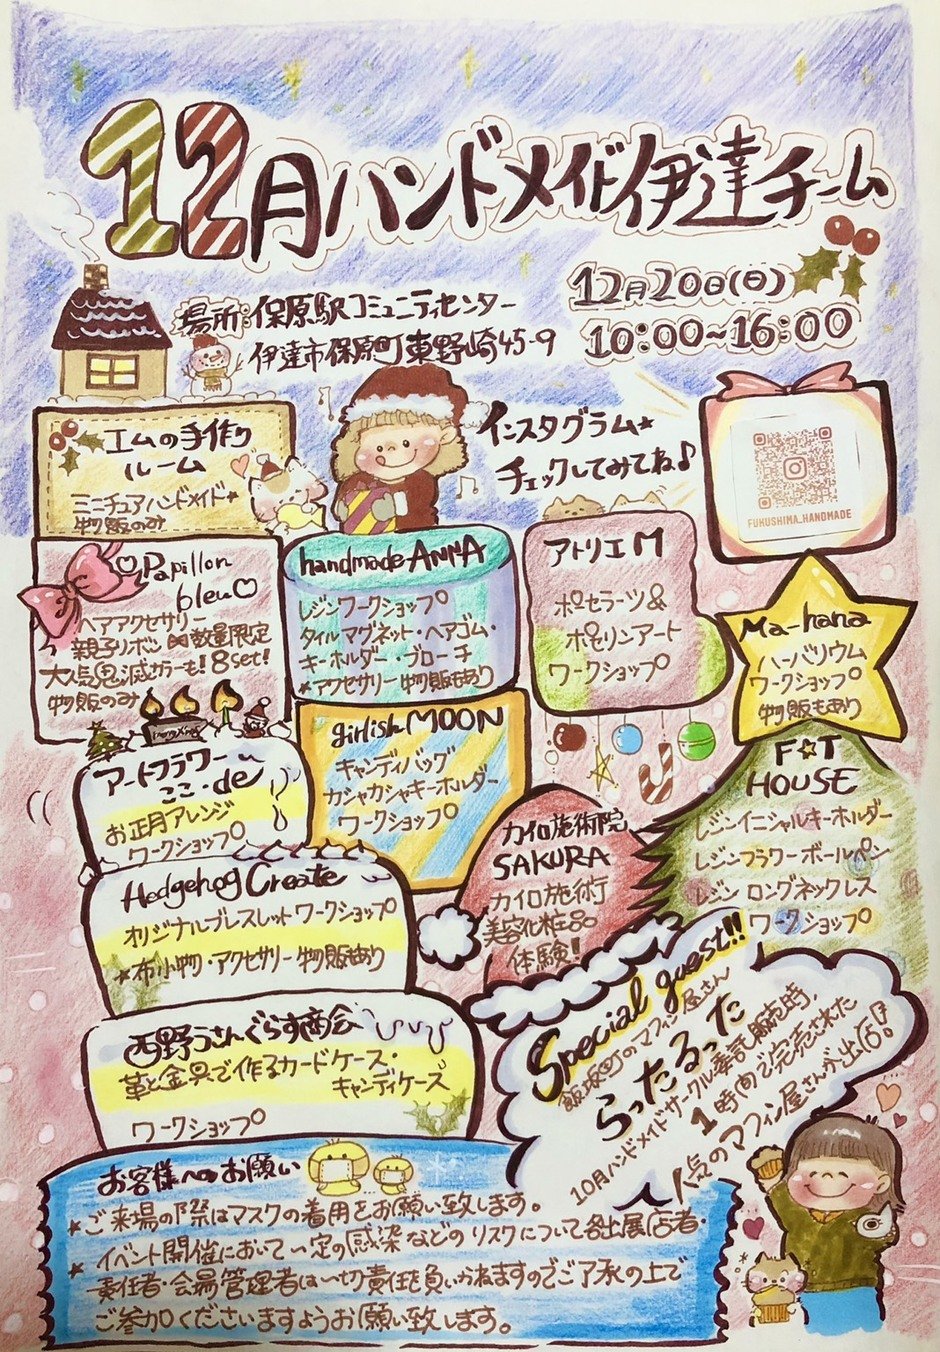 12月ハンドメイド伊達チーム
12月20日(日)
10:00~16:00
場所:保原駅コミュニティセンター
伊達市保原町東野崎45-9
インスタグラム★
チェックしてみてね♪
FUKUSHIMA_HANDMADE
エムの手作り
ルーム
ミニチュアハンドメイド★
物販のみ
♡Papillon
bleu♡
ヘアアクセサリー
親子リボン 数量限定
大人気鬼滅カラーも!8set!
物販のみ
handmade ANNA
レジンワークショップ
タイルマグネット・ヘアゴム・
キーホルダー・ブローチ
★アクセサリー物販もあり
アトリエM
ポーセラーツ&
ポーセリンアート
ワークショップ
Ma-hana
ハーバリウム
ワークショップ
物販もあり
アートフラワー
ここ・de
お正月アレンジ
ワークショップ
girlish MOON
キャンディバッグ
カシャカシャキーホルダー
ワークショップ
F★T
HOUSE
レジンイニシャルキーホルダー
レジンフラワーボールペン
レジンロングネックレス
ワークショップ
カイロ施術院
SAKURA
カイロ施術
美容化粧品
体験!
Hedgehog Create
オリジナルブレスレットワークショップ
★布小物・アクセサリー物販もあり
西野うさんぐらす商会
革と金具で作るカードケース・
キャンディケース
ワークショップ
Special guest!!
飯坂町のマフィン屋さん
らったるった
10月ハンドメイドサークル委託販売時、
1時間で完売された
人気のマフィン屋さんが出店!
お客様へのお願い
★ご来場の際はマスクの着用をお願い致します。
★イベント開催において一定の感染などのリスクについて各出展店者・
責任者・会場管理者は一切責任を負いかねますのでご了承の上で
ご参加くださいますようお願い致します。